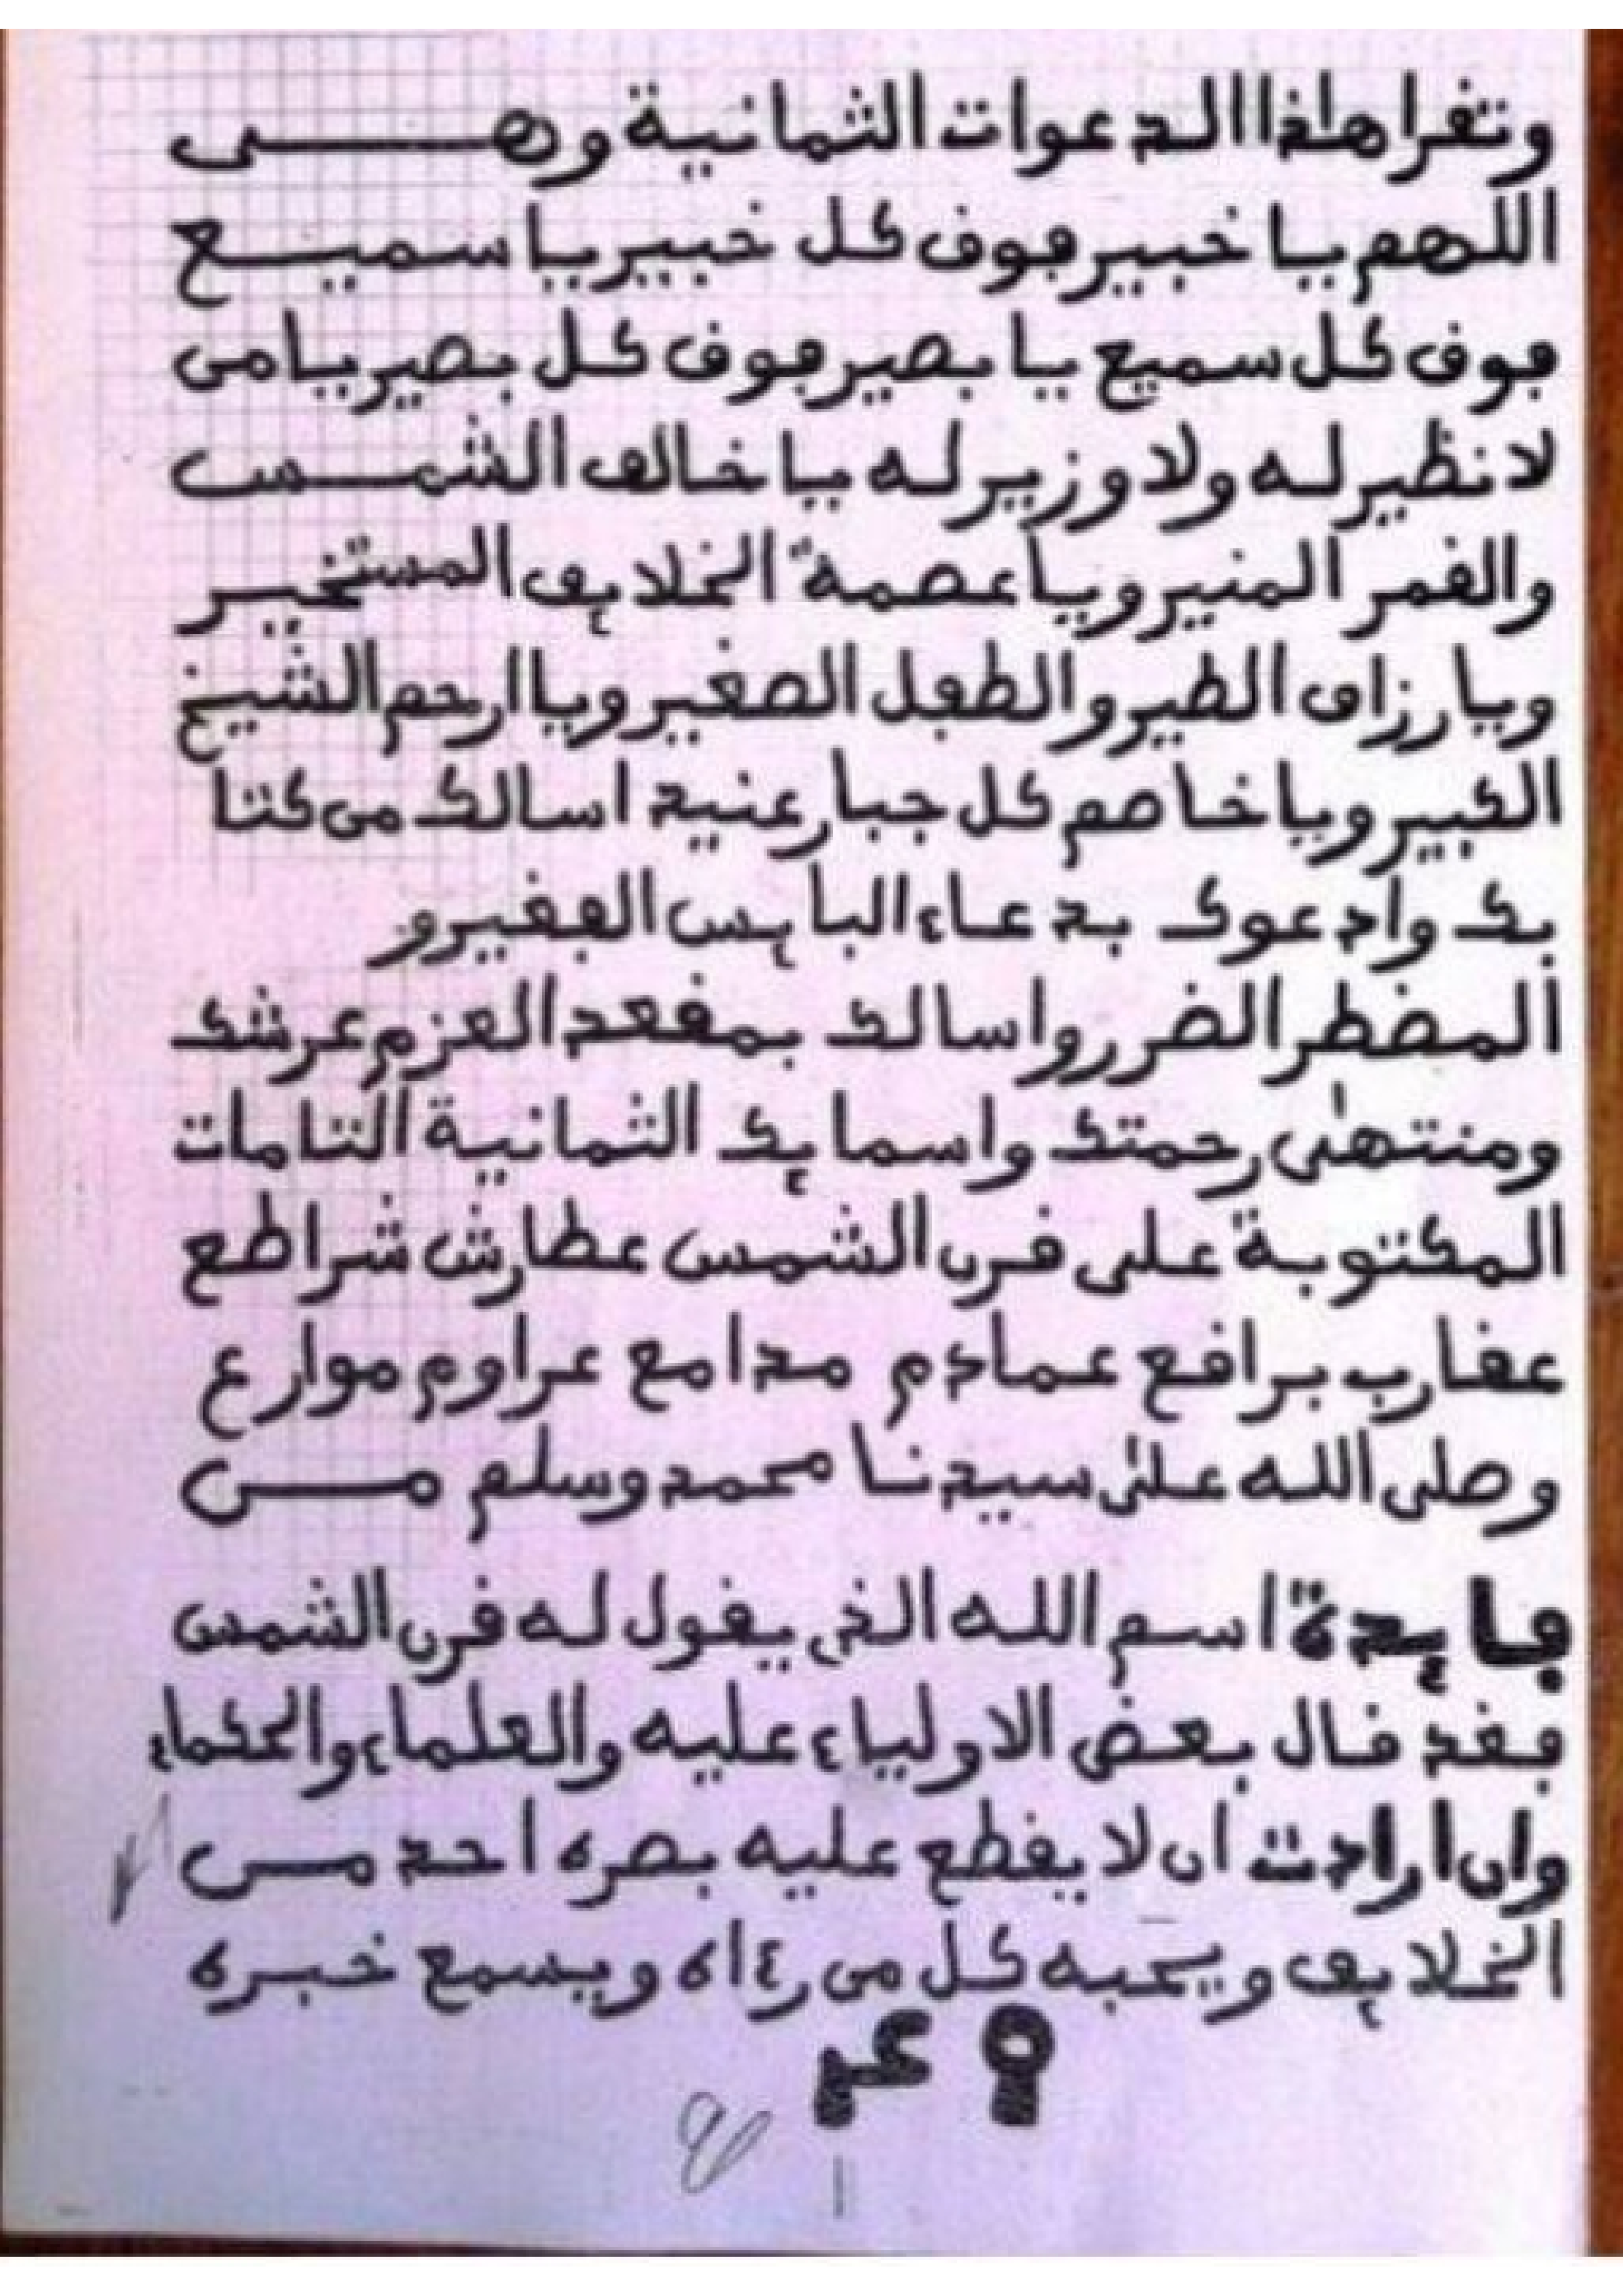 وتقرا هاذا الدعوات الثمانية وهي
اللهم يا خبير فوق كل خبير يا سميع
فوق كل سميع يا بصير فوق كل بصير يا من
لا نظير له ولا وزير له يا خالق الشمس
والقمر المنير ويا عصمة الخلايق المستخير
ويا رزاق الطير والطفل الصغير ويا ارحم الشيخ
الكبير ويا خاصم كل جبار عنيد اسالك من كتا
بك وادعوك بدعاء البايس الفقير و
المضطر الضرر واسالك بمقعد العزم عرشك
ومنتهى رحمتك واسمايك الثمانية التامات
المكتوبة على قرن الشمس عطارش شراطع
عقارب براقع عمادم مدامع عراوم موارع
وصلى الله على سيدنا محمد وسلم من
فايدة اسم الله الذي يقول له قرن الشمس
فقد قال بعض الاولياء عليه والعلماء والحكماء
وان ارادت ان لا يقطع عليه بصره احد من
الخلايق ويحبه كل من رءاه ويسمع خبره